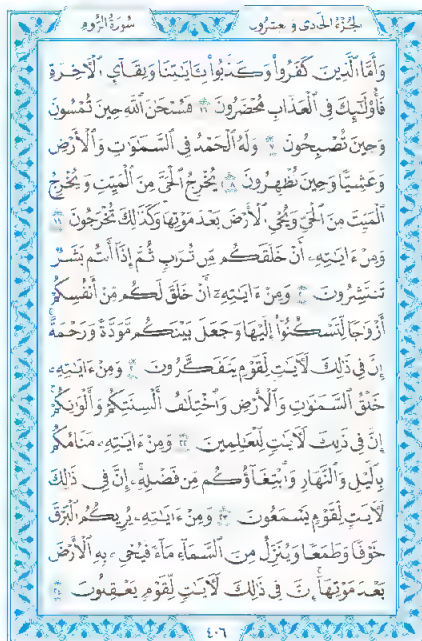 الجزء الحادي و عشرون سورة الروم
وَأَمَّا الَّذِينَ كَفَرُوا وَكَذَّبُوا بِـَٔايَـٰتِنَا وَلِقَآئِ الْأَخِرَةِ
فَأُو۟لَـٰٓئِكَ فِي الْعَذَابِ مُحْضَرُونَ ١٦ فَسُبْحَـٰنَ اللَّهِ حِينَ تُمْسُونَ
وَحِينَ تُصْبِحُونَ ١٧ وَلَهُ الْحَمْدُ فِي السَّمَـٰوَٰتِ وَالْأَرْضِ
وَعَشِيًّا وَحِينَ تُظْهِرُونَ ١٨ يُخْرِجُ الْحَيَّ مِنَ الْمَيِّتِ وَيُخْرِجُ
الْمَيِّتَ مِنَ الْحَيِّ وَيُحْيِ الْأَرْضَ بَعْدَ مَوْتِهَا وَكَذَٰلِكَ تُخْرَجُونَ ١٩
وَمِنْ ءَايَـٰتِهِۦٓ أَنْ خَلَقَكُم مِّن تُرَابٍ ثُمَّ إِذَآ أَنتُم بَشَرٌ
تَنتَشِرُونَ ٢٠ وَمِنْ ءَايَـٰتِهِۦٓ أَنْ خَلَقَ لَكُم مِّنْ أَنفُسِكُمْ
أَزْوَٰجًا لِّتَسْكُنُوٓا۟ إِلَيْهَا وَجَعَلَ بَيْنَكُم مَّوَدَّةً وَرَحْمَةً
إِنَّ فِي ذَٰلِكَ لَأَيَـٰتٍ لِّقَوْمٍ يَتَفَكَّرُونَ ٢١ وَمِنْ ءَايَـٰتِهِۦ
خَلْقُ السَّمَـٰوَٰتِ وَالْأَرْضِ وَاخْتِلَـٰفُ أَلْسِنَتِكُمْ وَأَلْوَٰنِكُمْ
إِنَّ فِي ذَٰلِكَ لَأَيَـٰتٍ لِّلْعَـٰلِمِينَ ٢٢ وَمِنْ ءَايَـٰتِهِۦ مَنَامُكُم
بِالَّيْلِ وَالنَّهَارِ وَابْتِغَآؤُكُم مِّن فَضْلِهِۦٓ إِنَّ فِي ذَٰلِكَ
لَأَيَـٰتٍ لِّقَوْمٍ يَسْمَعُونَ ٢٣ وَمِنْ ءَايَـٰتِهِۦ يُرِيكُمُ الْبَرْقَ
خَوْفًا وَطَمَعًا وَيُنَزِّلُ مِنَ السَّمَآءِ مَآءً فَيُحْيِۦ بِهِ الْأَرْضَ
بَعْدَ مَوْتِهَآ إِنَّ فِي ذَٰلِكَ لَأَيَـٰتٍ لِّقَوْمٍ يَعْقِلُونَ ٢٤
٤٠٦